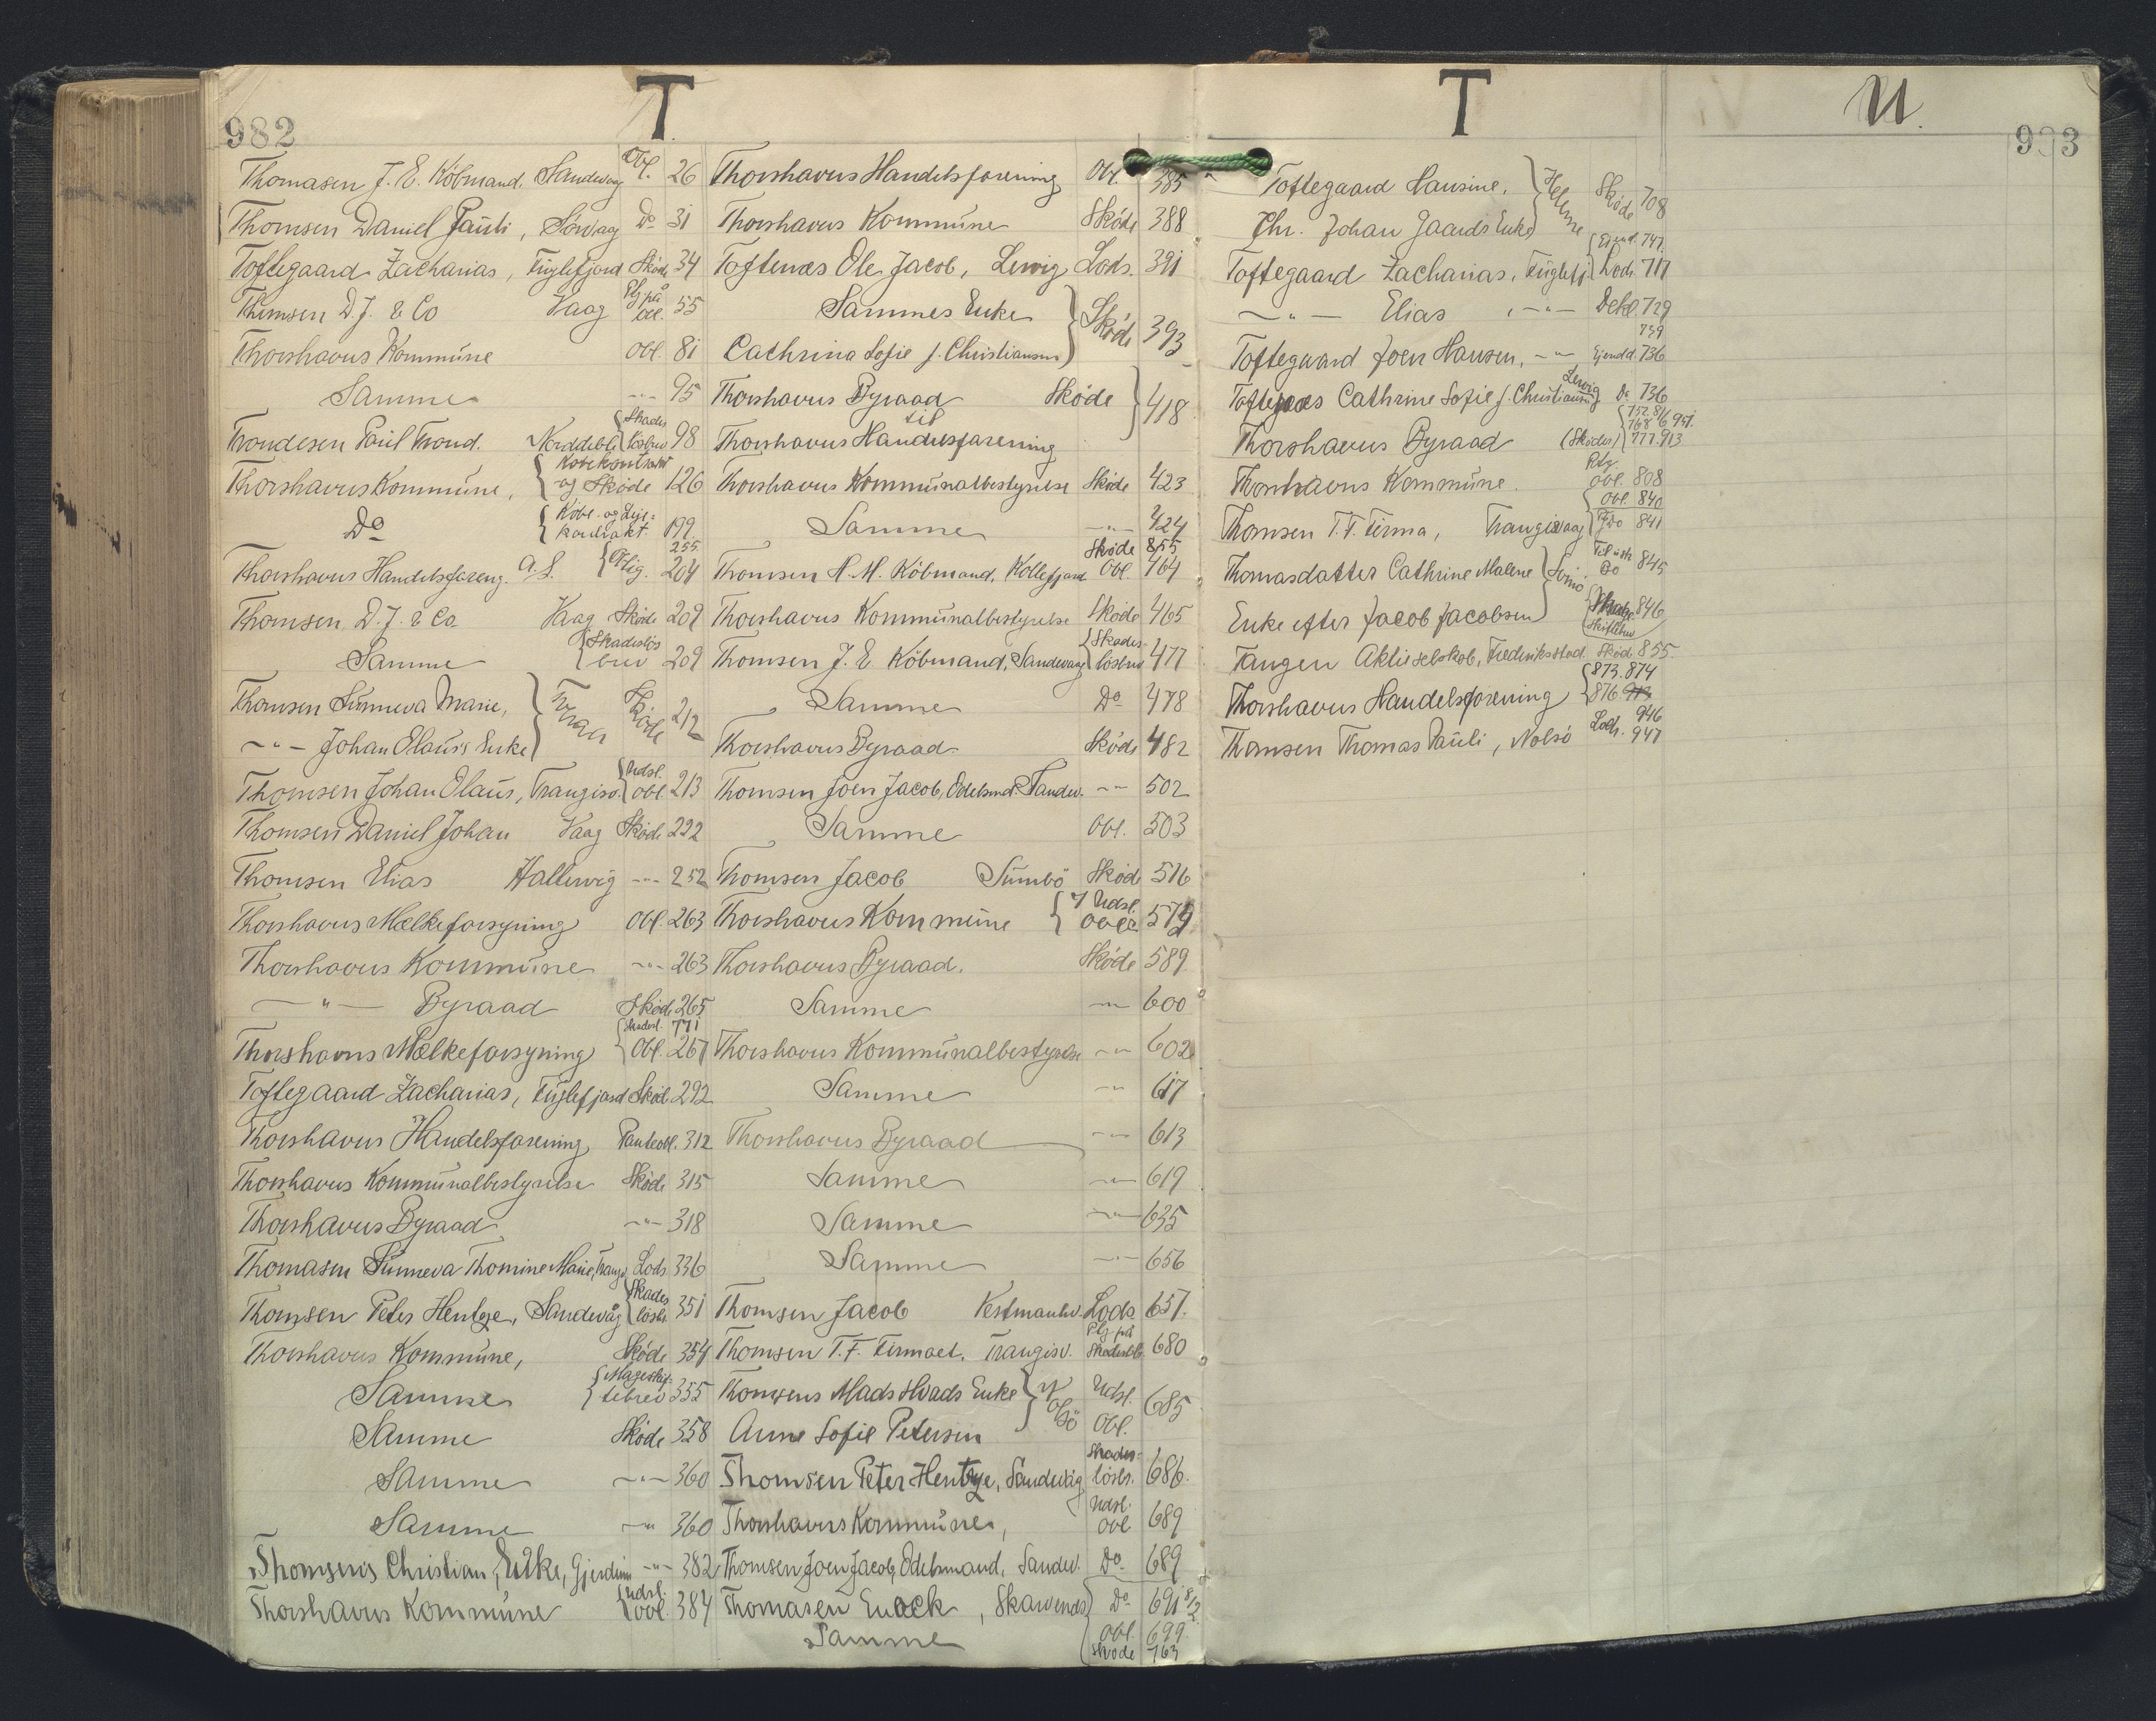 982
T
Thomasen J. E. Köbmand, Sandevag Obl. 26
Thomsen Daniel Pauli, Sörvag Do 31
Toftegaard Zacharias, Fuglefjord Sköde 34
Thomsen D. J. & Co Vaag Plj på Obl. 55
Thorshavns Kommune Obl. 81
Samme -"- 95
Trondesen Paul Trond. Norddeble Skades lösbrev 98
Thorshavns Kommune, Köbekontrakt og Sköde 126
Do Köbe- og Leje= kontrakt 199
Thorshavns Handelsforeng. A. S. Oblig. 255 204
Thomsen D. J. & Co. Vaag Sköde 207
Samme Skadeslös brev 209
Thomsen Sunneva Marie,
-"- Johan Olaus's Enke Sköde 212
Thomsen Johan Olaus, Trangisv. Udsl. Obl. 213
Thomsen Daniel Johan Vaag Sköde 222
Thomsen Elias Hallervig -"- 252
Thorshavns Mælkeforsyning Obl. 263
Thorshavns Kommune -"- 263
-"- Byraad Sköde 265
Thorshavns Mælkeforsyning Skadesl. 771 Obl. 267
Toftegaard Zacharias, Fuglefjord Sköd. 292
Thorshavns Handelsforening Panteobl. 312
Thorshavns Kommunalbestyrelse Sköde 315
Thorshavns Byraad -"- 318
Thomasen Sunneva Thomine Marie, Trangv. Lods. 336
Thomsen Peter Hentze, Sandevåg Skades lösbr. 351
Thorshavns Kommune, Sköde 354
Samme Mageskif- tebrev 355
Samme Sköde 358
Samme -"- 360
Samme -"- 360
Thomsens Christian, Enke, Gjerdum -"- 382
Thorshavns Kommune Udsl. Obl. 384
Thorshavns Handelsforening Obl. 385
Thorshavns Kommune Sköde 388
Toftenæs Ole Jacob, Lervig Lods. 391
Sammes Enke
Cathrina Sofie f. Christiansen Sköde 393
Thorshavns Byraad Sköde
til
Thorshavns Handelsforening 418
Thorshavns Kommunalbestyrelse Sköde 423
Samme -"- 424
Sköde 855
Thomsen H. M. Köbmand, Kollefjord Obl. 464
Thorshavns Kommunalbestyrelse Sköde 465
Thomsen J. E. Köbmand, Sandevaag Skades- lösbrev 477
Samme Do 478
Thorshavns Byraad. Sköde 482
Thomsen Joen Jacob, Odelsmd. Sandev. -"- 502
Samme Obl. 503
Thomsen Jacob Sumbö Sköde 516
Thorshavns Kommune 7 Udsl. Obl. 579
Thorshavns Byraad. Sköde 589
Samme -"- 600
Thorshavns Kommunalbestyrelse -"- 602
Samme -"- 617
Thorshavns Byraad -"- 613
Samme -"- 619
Samme -"- 635
Samme -"- 656
Thomsen Jacob Vestmanhv. Lods 657.
Thomsen T. F. Firmaet. Trangisv. Plj på Skadeslb. 680
Thomsens Mads Hvads Enke
Anne Sofie Petersen Nolsö Udsl. Obl. 685
Thomsen Peter Hentze, Sandevåg Skades- lösbr. 686.
Thorshavns Kommune, Udsl. Obl 689
Thomsen Joen Jacob, Odelsmand, Sandev. Do 689
Thomasen Enock, Skarvenæs Do 691 812
Samme Obl. 699
Sköde 763
T
U.
983
Toftegaard Hansine.
Chr. Johan Jaards Enke Sköde 708
Ejend. 747.
Toftegaard Zacharias, Fuglefj. Lods 717
-"- Elias, -"- Dekl. 729
739
Toftegaard Joen Hansen, -"- Ejendd. 736
Toftenæs Cathrine Sofie f. Christiansen Lervig Do 736
752. 816
768 951.
Thorshavns Byraad (Sköder) 777. 913
Thorshavns Kommune. Obl. 808
Obl. 840
Thomsen T. F. Firma, Trangisvaag Do 841
Thomasdatter Cathrine Malene 845
Enke efter Jacob Jacobsen Skiftebrv 846
Tangen Aktieselskab, Frederiksstad. Sköd. 855.
873. 874
Thorshavns Handelsforening 876 913
Thomsen Thomas Pauli, Nolsö Lods. 946 947